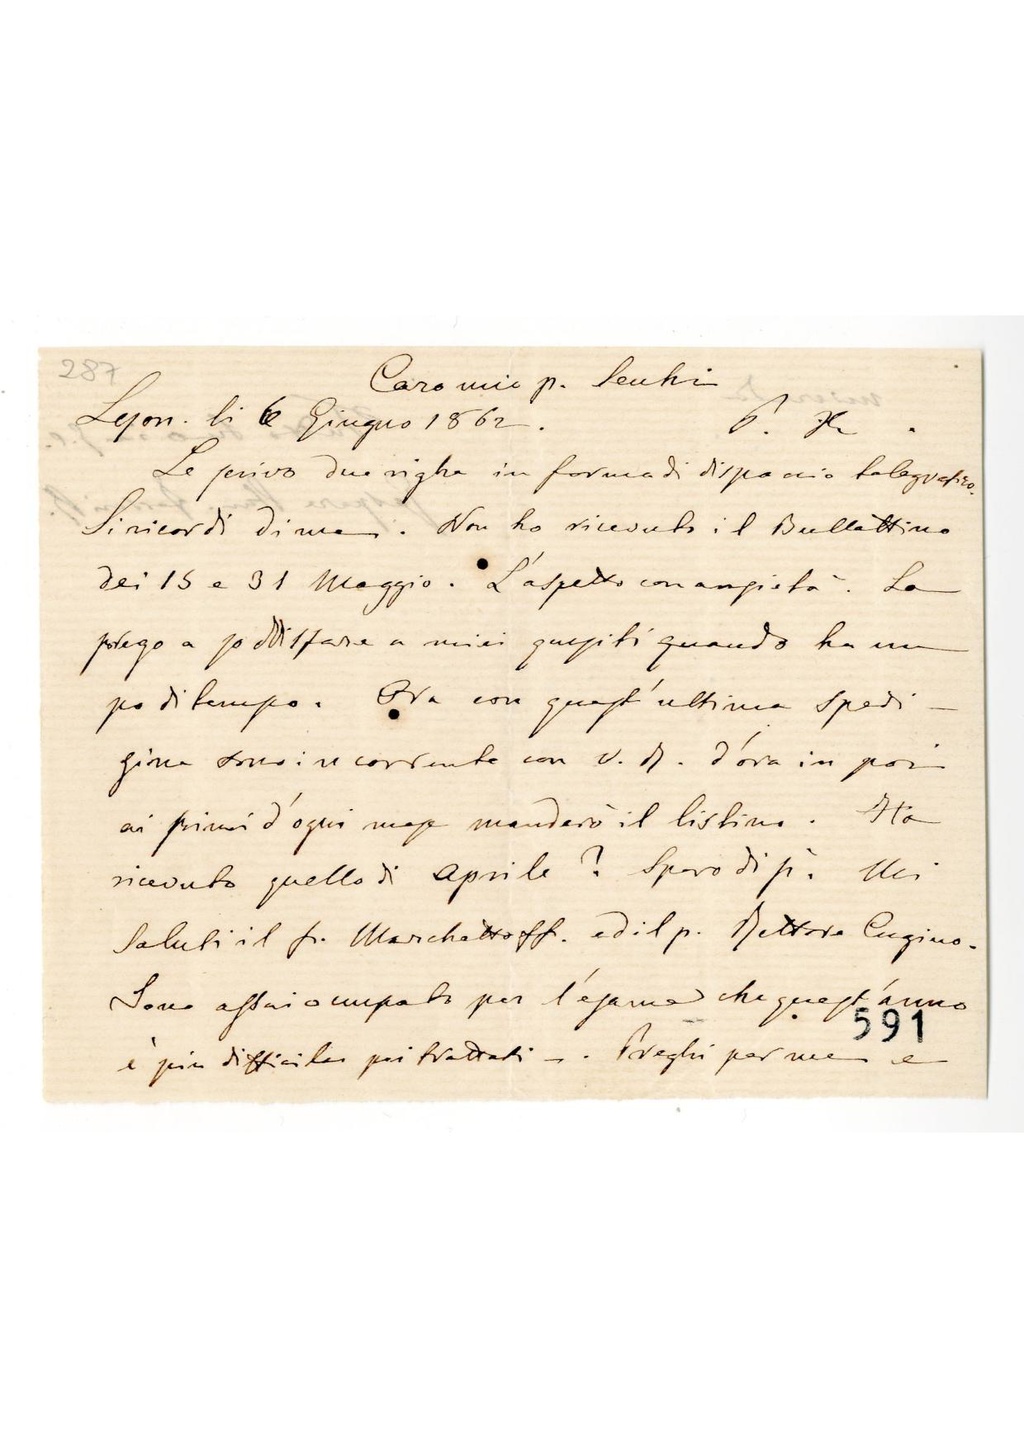 287
Caro mio p. Secchi
Lejon. li 6 Giugno 1862. P. X.
Le scrivo due righe in forma di dispaccio telegrafico.
Si ricordi di me. Non ho ricevuto il Bullettino
dei 15 e 31 Maggio. L'aspetto con ansietà. La
prego a soddisfare a miei quesiti quando ha un
po di tempo. Ora con quest'ultima spedi-
zione sono in corrente con V. R. d'ora in poi
ai primi d'ogni mese manderò il listino. Ha
ricevuto quello di Aprile? Spero di sì. Mi
saluti il p. Marchetti ed il p. Rettore Cugino.
Sono assai occupato per l'esame che quest'anno
è più difficile pei trattati -. Preghi per me e
591